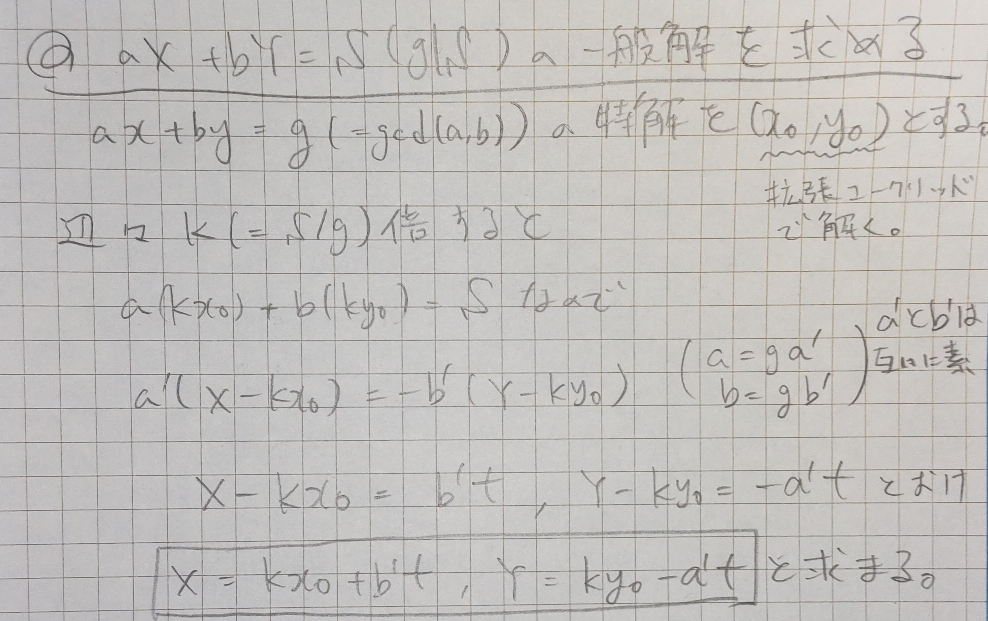 @ aX + bY = S (g|S) の一般解を求める
ax + by = g (= gcd(a, b)) の特解を (x₀, y₀) とする。
拡張ユークリッド
で解く。
辺々 k (= S/g) 倍すると
a(kx₀) + b(ky₀) = S なので
a'(X - kx₀) = -b'(Y - ky₀)
(a = ga'
b = gb')
a'とb'は
互いに素
X - kx₀ = b't , Y - ky₀ = -a't とおけ
X = kx₀ + b't , Y = ky₀ - a't と求まる。